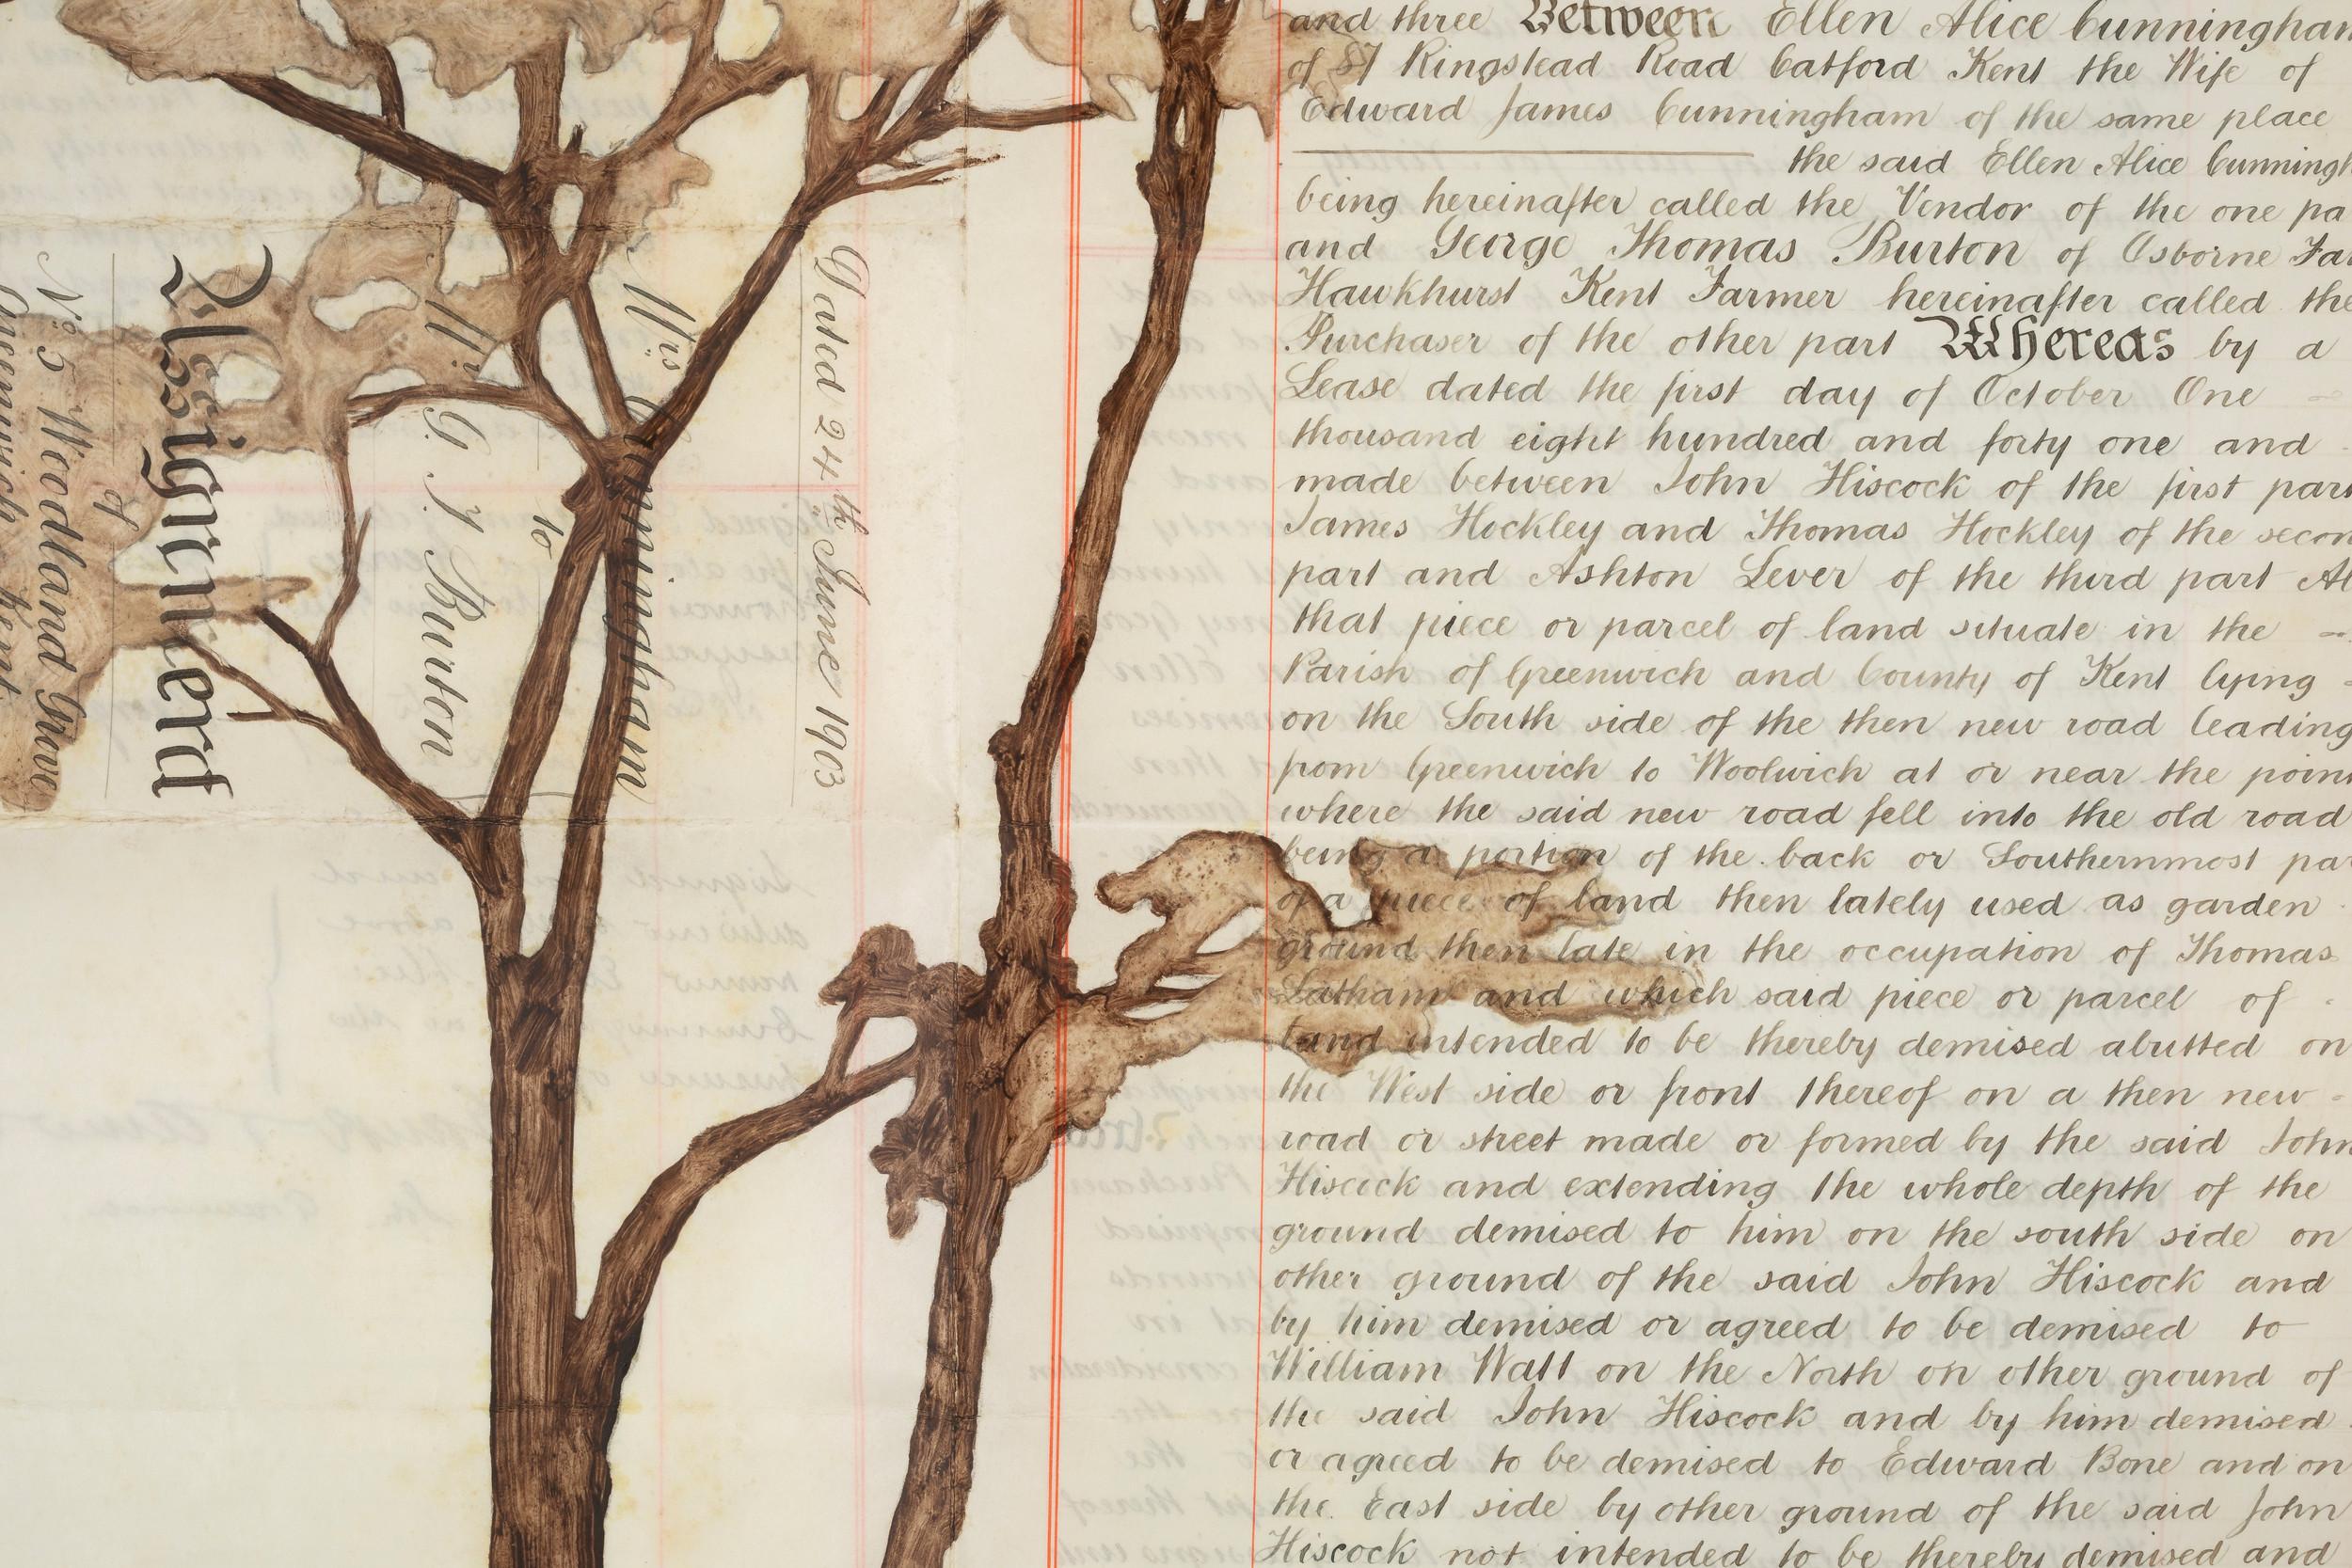 and three Between Ellen Alice Cunningham
of 87 Ringstead Road Catford Kent the Wife of
Edward James Cunningham of the same place
the said Ellen Alice Cunningh
being hereinafter called the Vendor of the one pa
and George Thomas Burton of Osborne Fa
Hawkhurst Kent Farmer hereinafter called the
Purchaser of the other part Whereas by a
Lease dated the first day of October One
thousand eight hundred and forty one and
made between John Hiscock of the first part
James Hockley and Thomas Hockley of the secon
part and Ashton Lever of the third part Al
that piece or parcel of land situate in the
Parish of Greenwich and County of Kent lying
on the South side of the then new road leading
from Greenwich to Woolwich at or near the point
where the said new road fell into the old road
being a portion of the back or Southernmost pa
of a piece of land then lately used as garden
ground then late in the occupation of Thomas
Latham and which said piece or parcel of
land intended to be thereby demised abutted on
the West side or front thereof on a then new
road or street made or formed by the said John
Hiscock and extending the whole depth of the
ground demised to him on the south side on
other ground of the said John Hiscock and
by him demised or agreed to be demised to
William Watt on the North on other ground of
the said John Hiscock and by him demised
or agreed to be demised to Edward Bone and on
the East side by other ground of the said John
Hiscock not intended to be thereby demised and
Dated 24th June 1903
Mrs Cunningham
to
Mr G. T. Burton
Assignment
of
No 5 Woodland Grove
Greenwich Kent